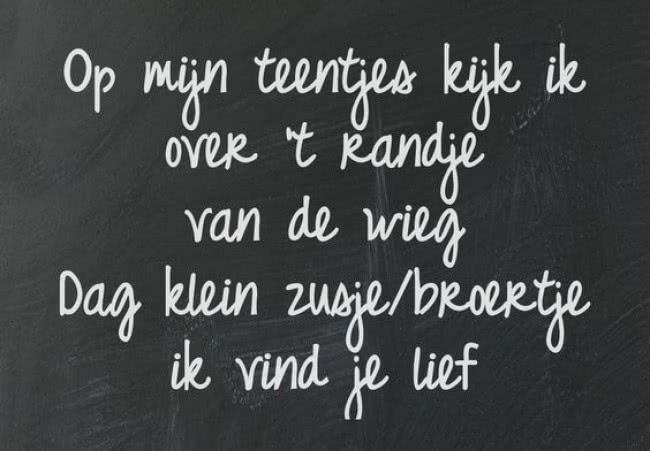 Op mijn teentjes kijk ik
over 't randje
van de wieg
Dag klein zusje/broertje
ik vind je lief